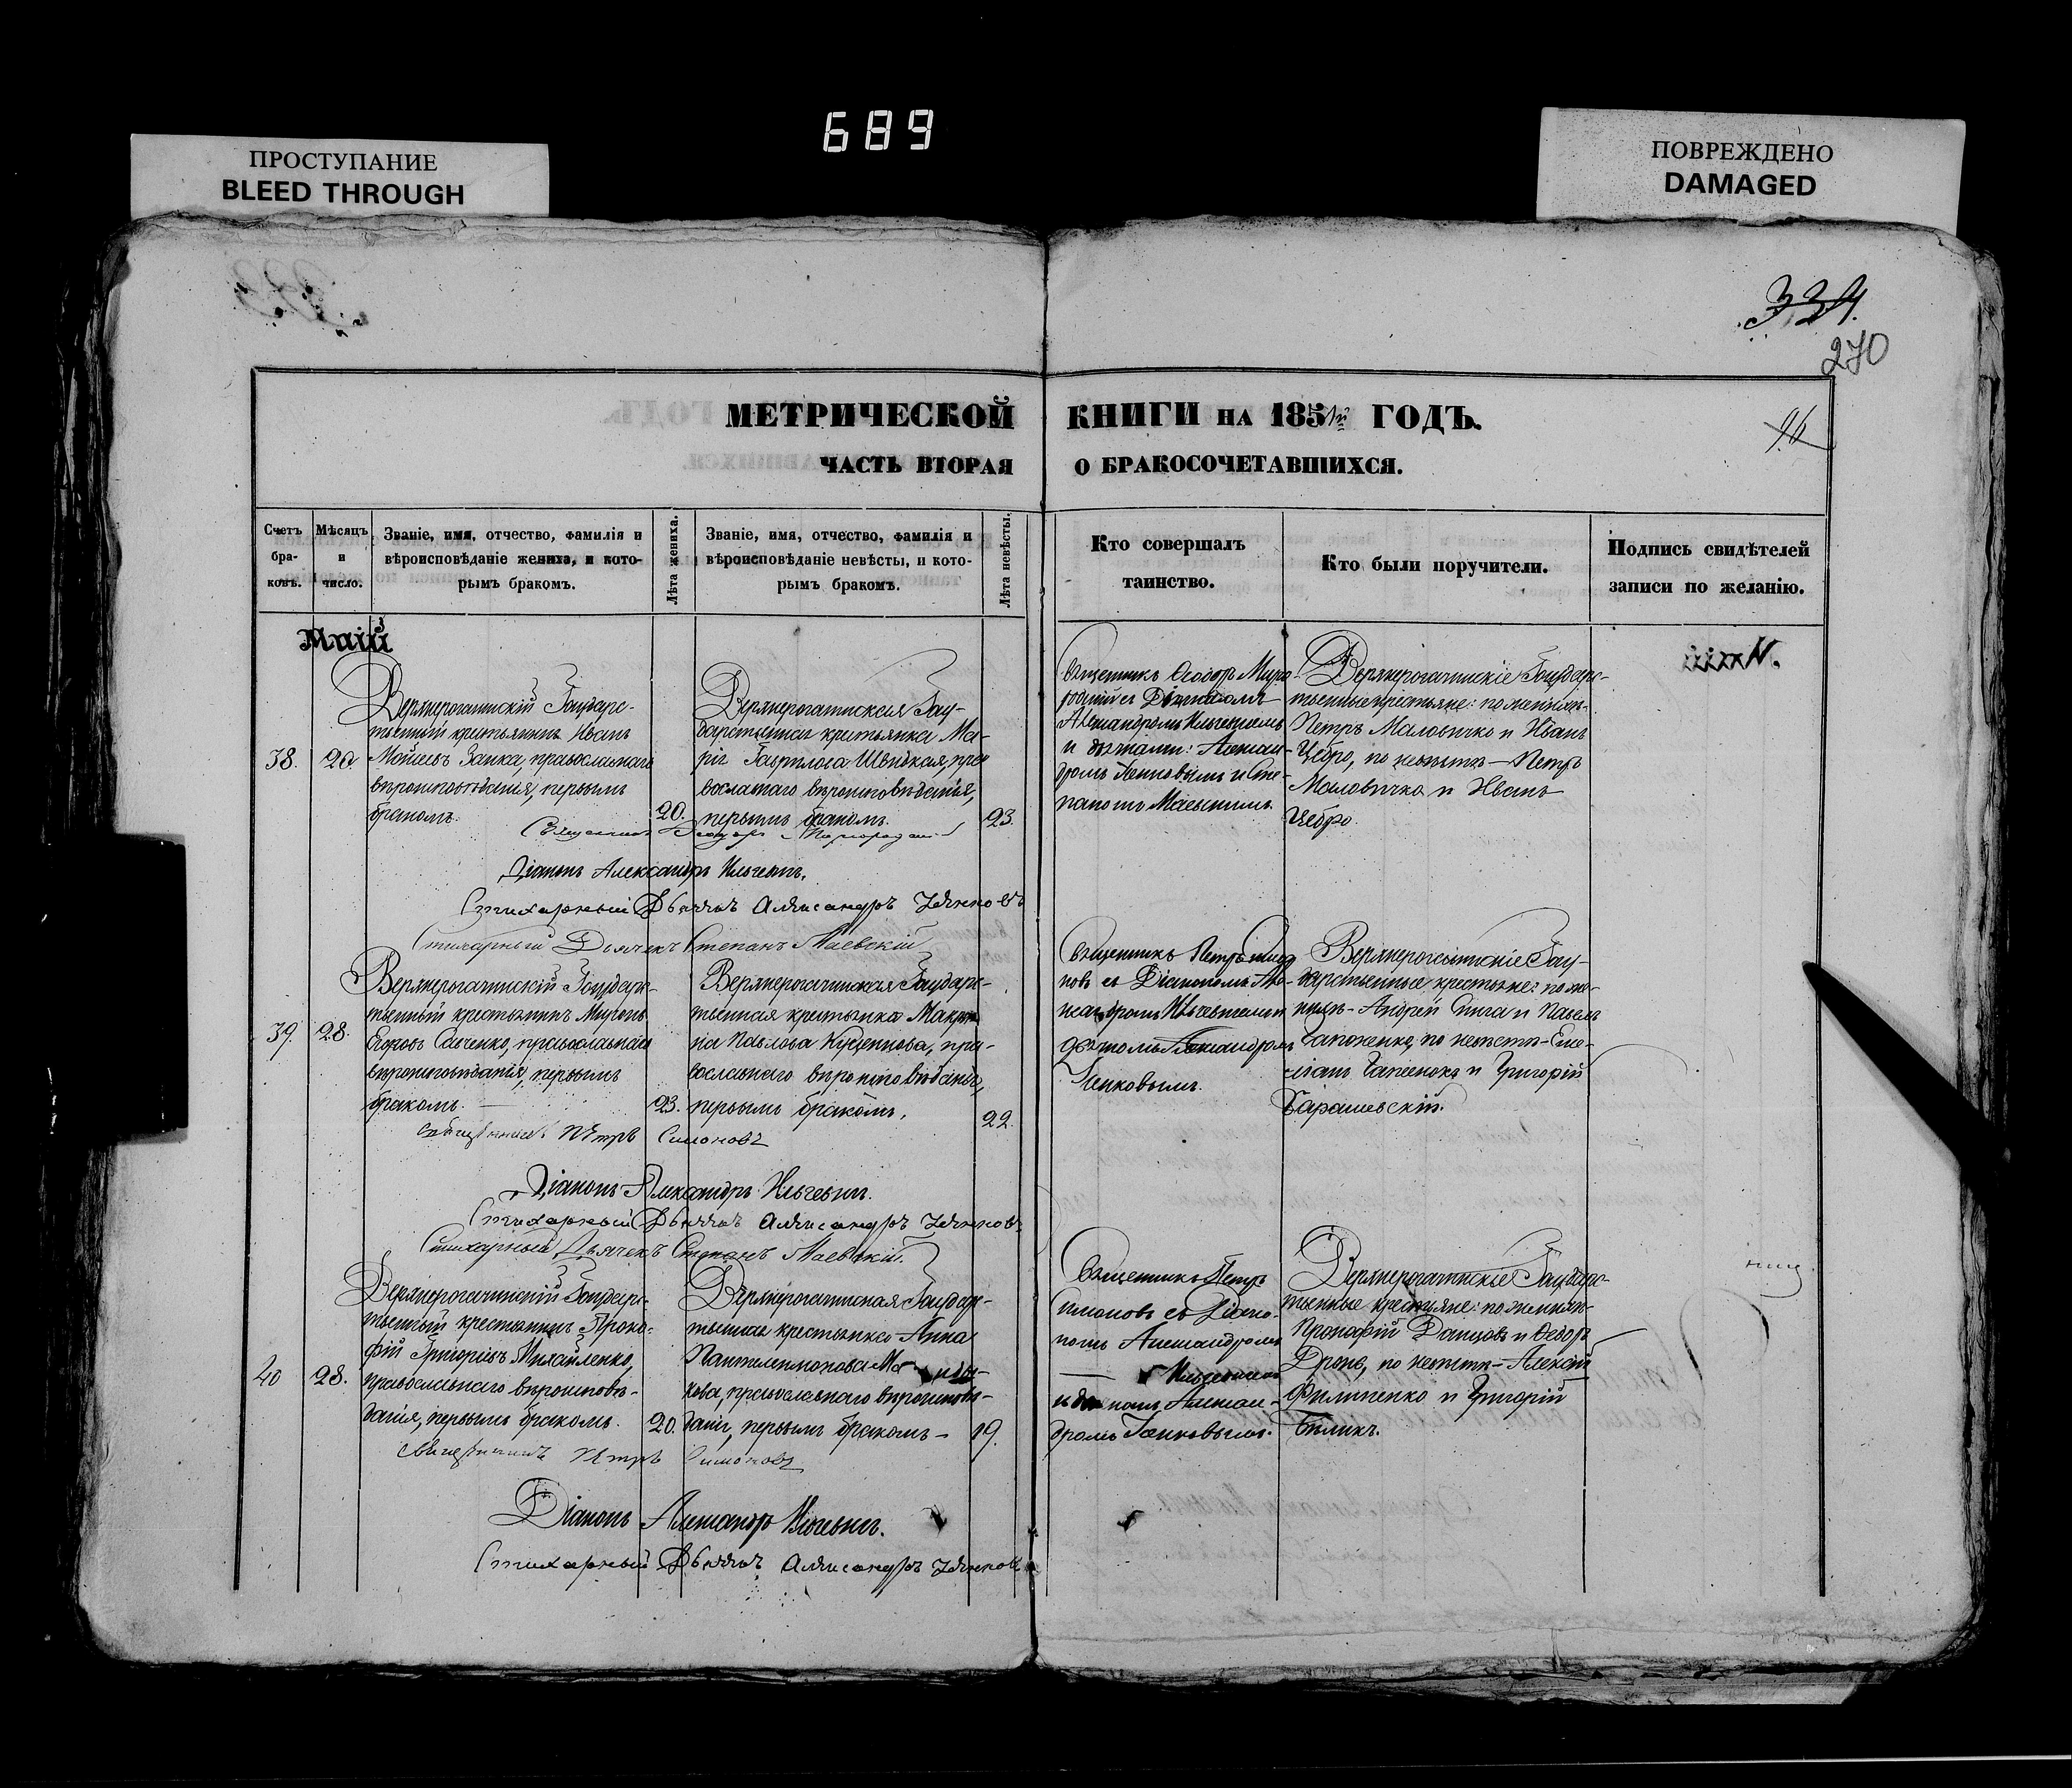 689
ПРОСТУПАНИЕ
BLEED THROUGH
ПОВРЕЖДЕНО
DAMAGED
334.
270
96
МЕТРИЧЕСКОЙ КНИГИ НА 1851й ГОДЪ.
ЧАСТЬ ВТОРАЯ О БРАКОСОЧЕТАВШИХСЯ.
Счетъ бра-ковъ.
Мѣсяцъ и число.
Званіе, имя, отчество, фамилія и
вѣроисповѣданіе жениха, и кото-
рымъ бракомъ.
Лѣта жениха.
Званіе, имя, отчество, фамилія и
вѣроисповѣданіе невѣсты, и кото-
рымъ бракомъ.
Лѣта невѣсты.
Кто совершалъ
таинство.
Кто были поручители.
Подпись свидѣтелей
записи по желанію.
Маій
38.
20.
Верхнерогачинскій Государс-
твенный крестьянинъ Иванъ
Заика, православнаго
вѣроисповѣданія, первымъ
бракомъ.
20.
Верхнерогачинская Госу-
дарственная крестьянка Ма-
рія Гаврилова Швидкая, пра-
вославнаго вѣроисповѣданія,
первымъ бракомъ.
23.
Священникъ Ѳеодоръ
съ Діакономъ
Александромъ Ильчевичемъ
и дьячками: Алексан-
дромъ и Сте-
паномъ Маевскимъ.
Верхнерогачинскіе Государс-
твенные крестьяне: по женихѣ-
Петръ Маловичко и Иванъ
Цебро, по невѣстѣ — Петръ
Маловичко и Иванъ
Цебро.
Священникъ Ѳеодоръ
Діаконъ Александръ Ильчевичъ.
Стихарный Дьячокъ Александръ
Стихарный Дьячекъ Степанъ Маевскій
39.
28.
Верхнерогачинскій Государс-
твенный крестьянинъ Миронъ
Егоровъ Савченко, православнаго
вѣроисповѣданія, первымъ
бракомъ.
23.
Верхнерогачинская Государс-
твенная крестьянка Макри-
на Павлова Куценкова, пра-
вославнаго вѣроисповѣданія,
первымъ бракомъ.
22.
Священникъ Петръ Симо-
новъ съ Діакономъ Але-
ксандромъ Ильчевичемъ и
дьячкомъ Александромъ
Верхнерогачинскіе Госу-
дарственные крестьяне: по же-
нихѣ - Андрей и Павелъ
Гапоненко, по невѣстѣ - Еме-
ліанъ и Григорій
Барашевскій.
Священникъ Петръ Симоновъ
Діаконъ Александръ Ильчевичъ.
Стихарный Дьячокъ Александръ
Стихарный Дьячекъ Степанъ Маевскій.
40
28.
Верхнерогачинскій Государс-
твенный крестьянинъ Проко-
фій Григорьевъ Михайленко,
православнаго вѣроисповѣ-
данія, первымъ бракомъ.
20.
Верхнерогачинская Государс-
твенная крестьянка Анна
Пантелеимонова
православнаго вѣроисповѣ-
данія, первымъ бракомъ —
19.
Священникъ Петръ
Симоновъ съ Діако-
номъ Александромъ
Ильчевичемъ
и дьячкомъ Алексан-
дромъ
Верхнерогачинскіе Государс-
твенные крестьяне: по женихѣ-
Прокофій Данцовъ и Ѳедоръ
Дронь, по невѣстѣ - Алексѣй
Филипенко и Григорій
Бѣликъ.
Священникъ Петръ Симоновъ
Діаконъ Александръ Ильчевичъ.
Стихарный Дьячокъ Александръ